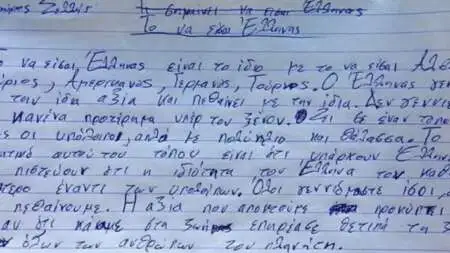 Τι σημαίνει να είσαι Έλληνας
Το να είσαι Έλληνας
Το να είσαι Έλληνας είναι το ίδιο με το να είσαι
Αμερικανός, Γερμανός, Τούρκος. Ο Έλληνας
την ίδια αξία και πεθαίνει με την ίδια. Δεν
κανένα προτέρημα υπέρ του ξένου. Ζει σε έναν
οι υπόλοιποι, αλλά με πολύ ήλιο και θάλασσα. Το
αυτού του τόπου είναι ότι υπάρχουν
πιστεύουν ότι η ιδιότητα του Έλληνα τον
έναντι των υπολοίπων. Όλοι γεννιόμαστε ίσοι,
πεθαίνουμε. Η αξία που αποκτούμε
αν ότι κάναμε στη ζωή μας επηρέασε θετικά τη
όλων των ανθρώπων του πλανήτη.